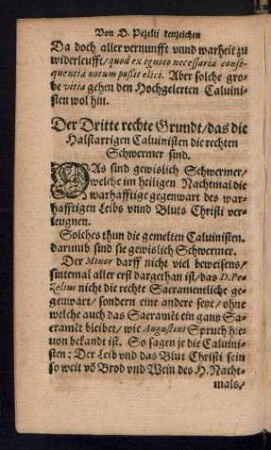 Von D. Pezelij kenzeichen
Da doch aller vernunfft vnnd warheit zu
widerleufft/ quod ex ignoto necessaria conse-
quentia notum possit elici. Aber solche gro-
be vitia gehen den Hochgelerten Caluini-
sten wol hin.
Der Dritte rechte Grundt/das die
Halstarrigen Caluinisten die rechten
Schwermer sind.
DAs sind gewislich Schwermer/
welche im heiligen Nachtmal die
warhafftige gegenwart des war-
hafftigen Leibs vnnd Bluts Christi ver-
leugnen.
Solches thun die gemelten Caluinisten.
darumb sind sie gewislich Schwermer.
Der Minor darff nicht viel beweisens/
sintemal aller erst dargethan ist/das D. Pe-
zelius nicht die rechte Sacramentliche ge-
genwart/ sondern eine andere setzt/ ohne
welche auch das Sacramēt ein gantz Sa-
cramēt bleibet/ wie Augustini Spruch hie-
uon bekandt ist. So sagen je die Caluini-
sten: Der Leib vnd das Blut Christi sein
so weit vō Brod vnd Wein des H. Nacht-
mals/